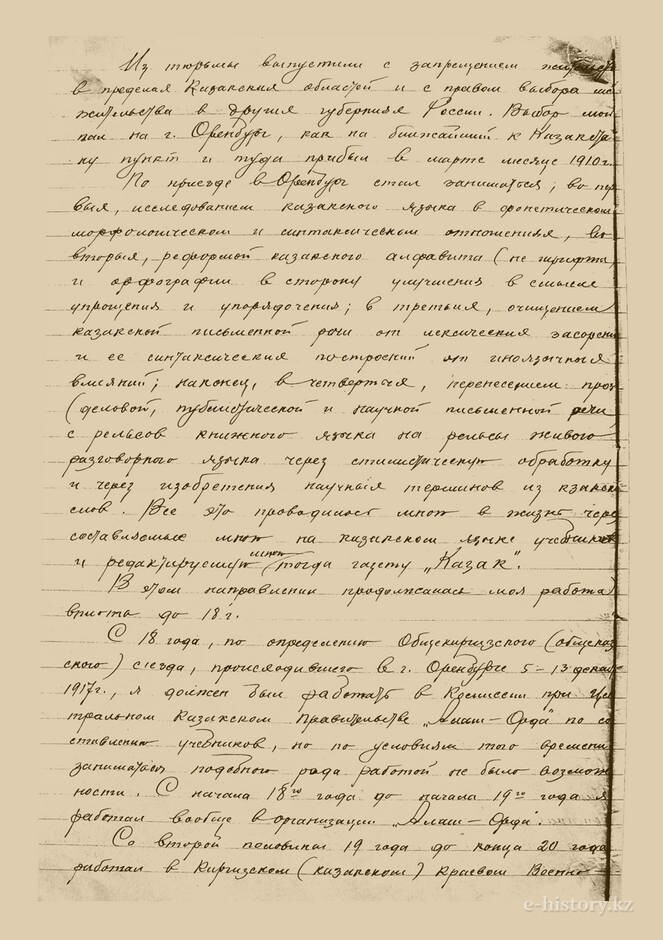 Из тюрьмы выпустили с запрещением жительст
в пределах Казакских областей и с правом выбора мес
жительства в других губерниях России. Выбор мой
пал на г. Оренбург, как на ближайший к Казакста
ну пункт и туда прибыл в марте месяце 1910 г.
По приезде в Оренбург стал заниматься; во пер
вых, исследованием казакского языка в фонетическом
морфологическом и синтаксическом отношениях, во
вторых, реформой казакского алфавита (не шрифта,
и орфографии в сторону улучшения в смысле
упрощения и упорядочения; в третьих, очищением
казакской письменной речи от лексических засорений
и ее синтаксических построений от иноязычных
влияний; наконец, в четвертых, перенесением проз
(деловой, публистической и научной письменной речи
с рельсов книжного языка на рельсы живого
разговорного языка через стилистическую обработку
и через изобретения научных терминов из казакс
слов. Все это проводилось мною в жизнь через
составляемые мною на казакском языке учебники
и редактируемую мною тогда газету „Казак“.
В этом направлении продолжалась моя работа
вплоть до 18 г.
С 18 года, по определению Общекиргизского (общеказ
ского) съезда, происходившего в г. Оренбурге 5–13 декаб
1917 г., я должен был работать в Комиссии при Цен
тральном Казакском Правительстве „Алаш–Орда“ по со
ставлению учебников, но по условиям того времени
заниматься подобного рода работой не было возмож
ности. С начала 18го года до начала 19го года я
работал вообще в организации „Алаш–Орда“.
Со второй половины 19 года до конца 20 года
работал в Киргизском (казакском) Краевом Военно–
e-history.kz